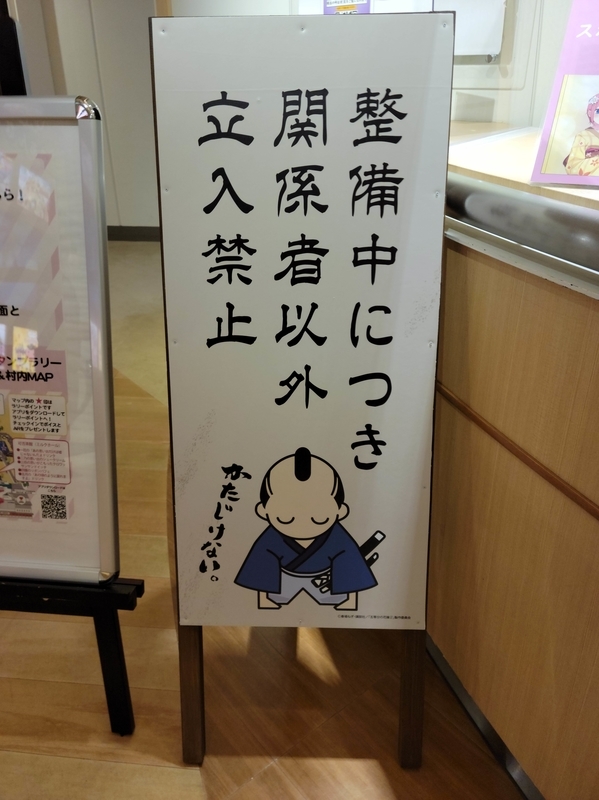 整備中につき
関係者以外
立入禁止
かたじけない。
ちら！
面と
タンプラリー
&村内MAP
マップ内の★印は
ラリーポイントです
アプリをダウンロードして
ラリーポイントへ！
チェックインでボイスと
ARをプレゼントします
ス